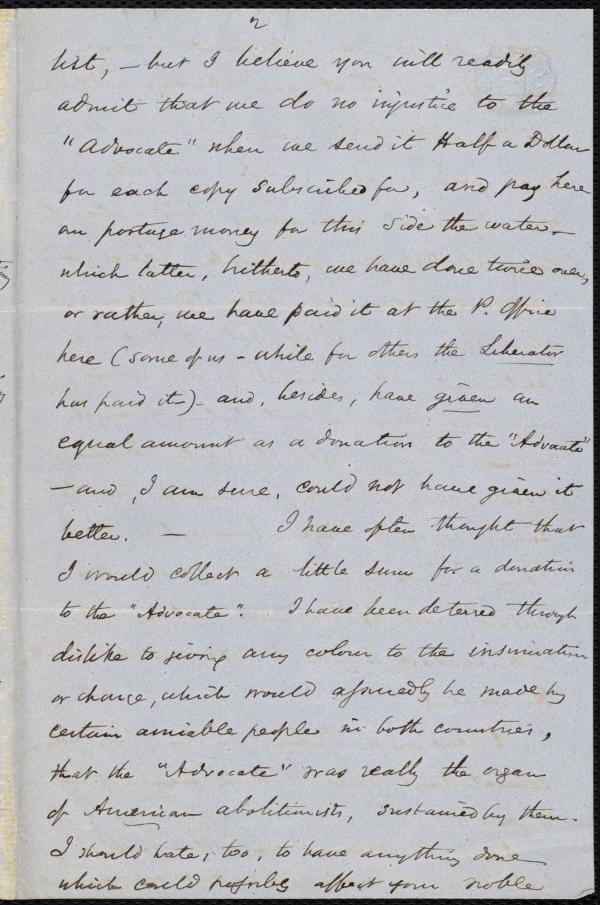 2
list, – but I believe you will readily
admit that we do no injustice to the
"Advocate" when we send it Half a Dollar
for each copy subscribed for, and pay here
our postage money for this side the water –
which latter, hitherto, we have done twice over,
or rather, we have paid it at the P. Office
here (some of us – while for others the Liberator
has paid it –) – and, besides, have given an
equal amount as a donation to the "Advocate"
– and, I am sure, could not have given it
better. — I have often thought that
I would collect a little sum for a donation
to the "Advocate". I have been deterred through
dislike to giving any colour to the insinuation
or charge, which would assuredly be made by
certain amiable people in both countries,
that the "Advocate" was really the organ
of American abolitionists, sustained by them.
I should hate, too, to have anything done
which could possibly affect your noble